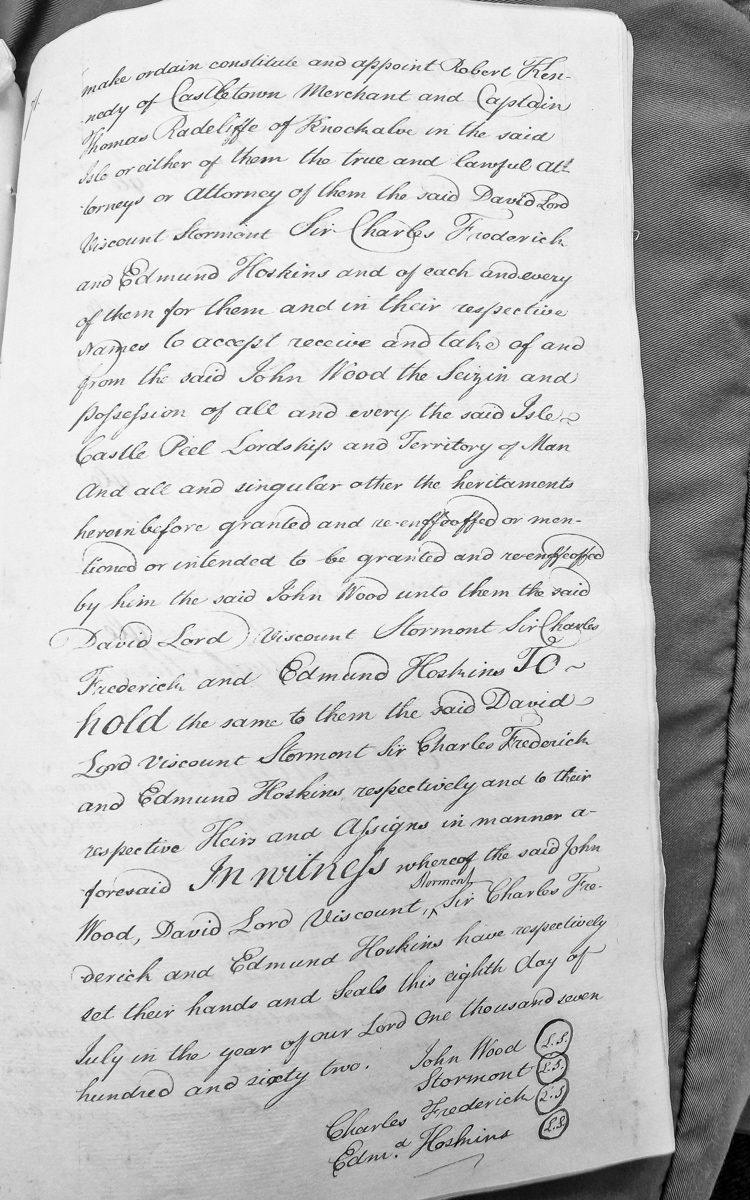 make ordain constitute and appoint Robert Ken-
nedy of Castletown Merchant and Captain
Thomas Radcliffe of Knockaloe in the said
Isle or either of them the true and lawful At-
torneys or Attorney of them the said David Lord
Viscount Stormont Sir Charles Frederick
and Edmund Hoskins and of each and every
of them for them and in their respective
Names to accept receive and take of and
from the said John Wood the Seizin and
Possession of all and every the said Isle
Castle Peel Lordship and Territory of Man
And all and singular other the heritaments
hereinbefore granted and re-enffeoffed or men-
tioned or intended to be granted and re-enffeoffed
by him the said John Wood unto them the said
David Lord Viscount Stormont Sir Charles
Frederick and Edmund Hoskins To
hold the same to them the said David
Lord Viscount Stormont Sir Charles Frederick
and Edmund Hoskins respectively and to their
respective Heirs and Assigns in manner a-
foresaid In witness whereof the said John
Wood, David Lord Viscount, ^Stormont Sir Charles Fre-
derick and Edmund Hoskins have respectively
set their hands and Seals this eighth day of
July in the year of our Lord One thousand seven
hundred and sixty two. John Wood L.S.
Stormont L.S.
Charles Frederick L.S.
Edm.d Hoskins L.S.